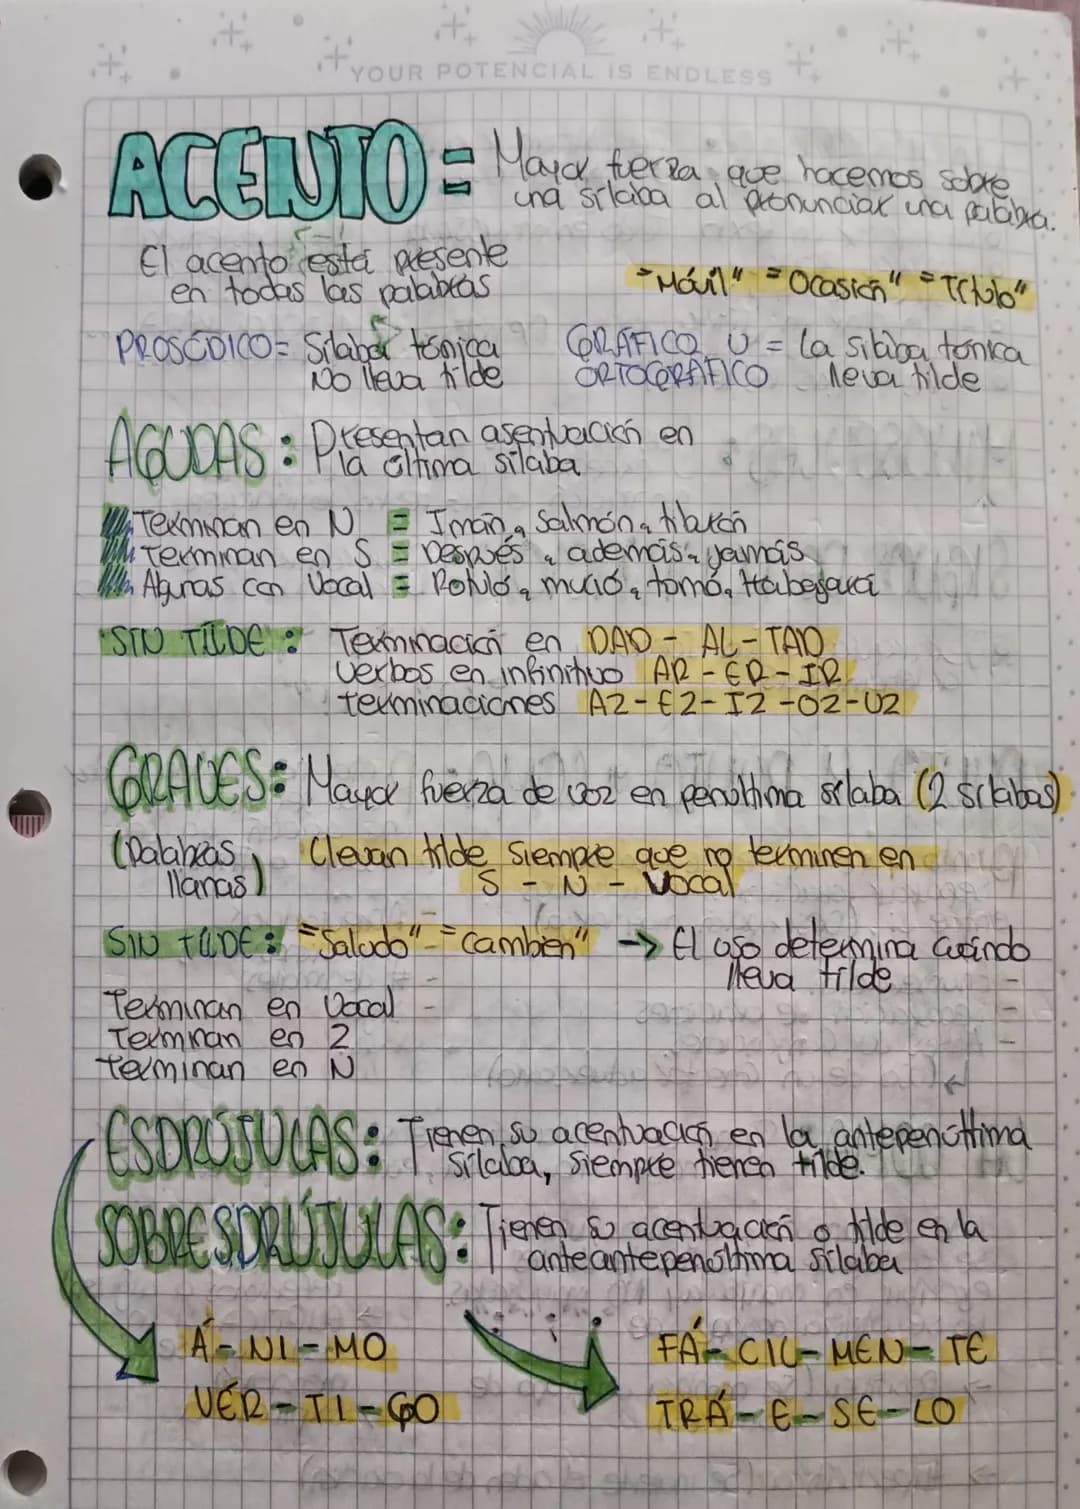 YOUR POTENCIAL IS ENDLESS
ACENTO = Mayor fuerza que hacemos sobre
una sílaba al pronunciar una palabra.
El acento está presente
en todas las palabras
"Móvil" "Ocasión" "Título"
PROSÓDICO = Sílaba tónica
No lleva tilde
GRÁFICO U = la silaba tónica
ORTOGRÁFICO lleva tilde
AGUDAS: Presentan asentuación en
la última sílaba
Terminan en N = Imán, Salmón, tiburón
Terminan en S = Después, además, jamás
Algunas con Vocal = murió, tomó, trabajará
SIN TILDE: Terminación en DAD - AL - TAD
verbos en infinitivo AR - ER - IR
terminaciones AZ - EZ - IZ - OZ - UZ
GRAVES: Mayor fuerza de voz en penúltima sílaba (2 sílabas)
(Palabras llanas)
Llevan tilde siempre que no terminen en
S - N - Vocal
SIN TILDE: "Saludo" - "Cambien" → El uso determina cuándo
lleva tilde
Terminan en Vocal
Terminan en Z
terminan en N
ESDRÚJULAS: Tienen su acentuación en la antepenúltima
sílaba, siempre tienen tilde.
SOBRESDRÚJULAS: Tienen su acentuación o tilde en la
anteantepenúltima sílaba
Á - NI - MO
VÉR - TI - GO
FÁ - CIL - MEN - TE
TRÁ - E - SE - LO